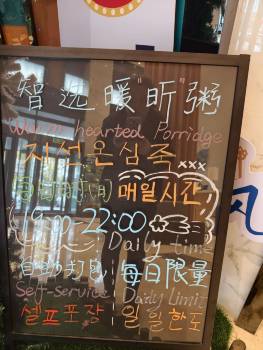 智选暖"昕"粥
Warm hearted Porridge
지선온심죽
每日时间 매일시간
19:00-22:00
Daily time
自助打包 每日限量
Self-service Daily Limit
셀프포장 일일한도